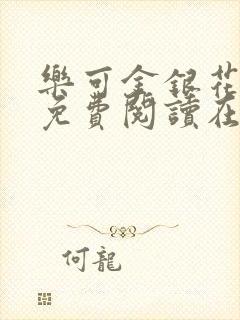 樂可金銀花
免費閱讀在
何龍